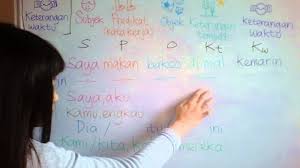 Keterangan Subjek Predikat Objek Keterangan Keterangan
waktu (kata kerja) tempat waktu
S P O Kt Kw
Saya makan bakso di mal kemarin
Saya, aku
Kamu, engkau
Dia / itu ini
Kami / kita, mereka